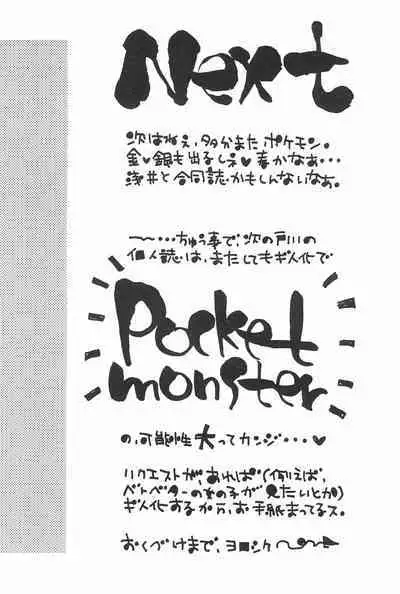 Next
次はねぇ、多分またポケモン。
金♥銀も出るしネ♥春かなあ…
浅井と合同誌かもしんないなぁ。
〜…ちゅう事で、次の戸川の
個人誌は、またしてもギ人化で
Pocket
monster
の、可能性大ってカンジ…♥
リクエストが、あれば(例えば、
ベトベターの女の子が見たいとか)
ギ人化するから、お手紙まってるス。
おくづけまで、ヨロシク